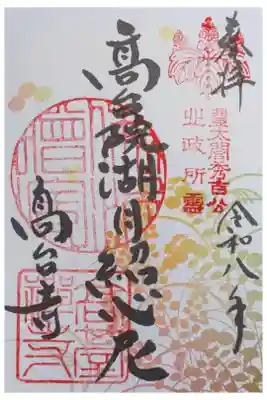 奉拝
豊太閤秀吉公
北政所 霊
令和八年
高台院湖月紹心尼
高台寺